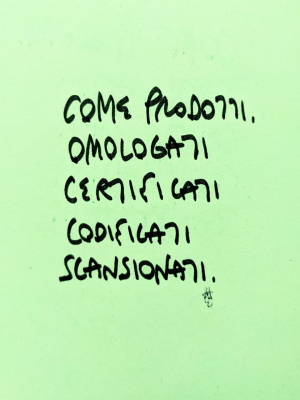 COME PRODOTTI.
OMOLOGATI
CERTIFICATI
CODIFICATI
SCANSIONATI.